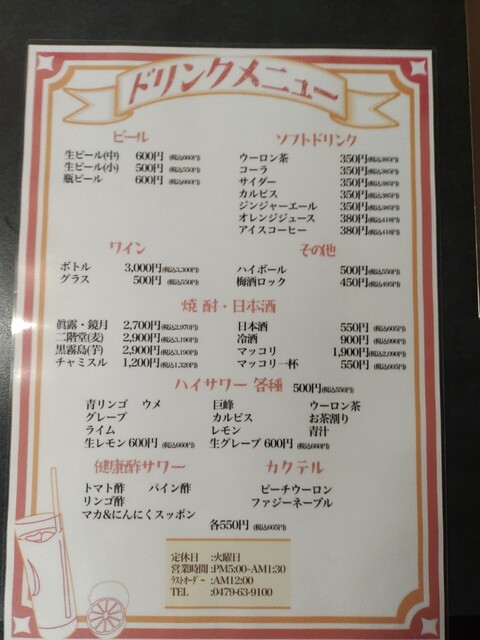 ドリンクメニュー
ビール
生ビール(中) 600円 (税込660円)
生ビール(小) 500円 (税込550円)
瓶ビール 600円 (税込660円)
ソフトドリンク
ウーロン茶 350円(税込385円)
コーラ 350円(税込385円)
サイダー 350円(税込385円)
カルピス 350円(税込385円)
ジンジャーエール 350円(税込385円)
オレンジジュース 380円(税込418円)
アイスコーヒー 380円(税込418円)
ワイン
ボトル 3,000円(税込3,300円)
グラス 500円 (税込550円)
その他
ハイボール 500円(税込550円)
梅酒ロック 450円(税込495円)
焼酎・日本酒
眞露・鏡月 2,700円(税込2,970円)
二階堂(麦) 2,900円(税込3,190円)
黒霧島(芋) 2,900円(税込3,190円)
チャミスル 1,200円(税込1,320円)
日本酒 550円(税込605円)
冷酒 900円(税込990円)
マッコリ 1,900円(税込2,090円)
マッコリ一杯 550円(税込605円)
ハイサワー 各種 500円(税込550円)
青リンゴ ウメ 巨峰 ウーロン茶
グレープ カルピス お茶割り
ライム レモン 青汁
生レモン 600円(税込660円) 生グレープ 600円(税込660円)
健康酢サワー
トマト酢 パイン酢
リンゴ酢
マカ&にんにくスッポン
各550円(税込605円)
カクテル
ピーチウーロン
ファジーネーブル
定休日 :火曜日
営業時間:PM5:00~AM1:30
ラストオーダー :AM12:00
TEL :0479-63-9100